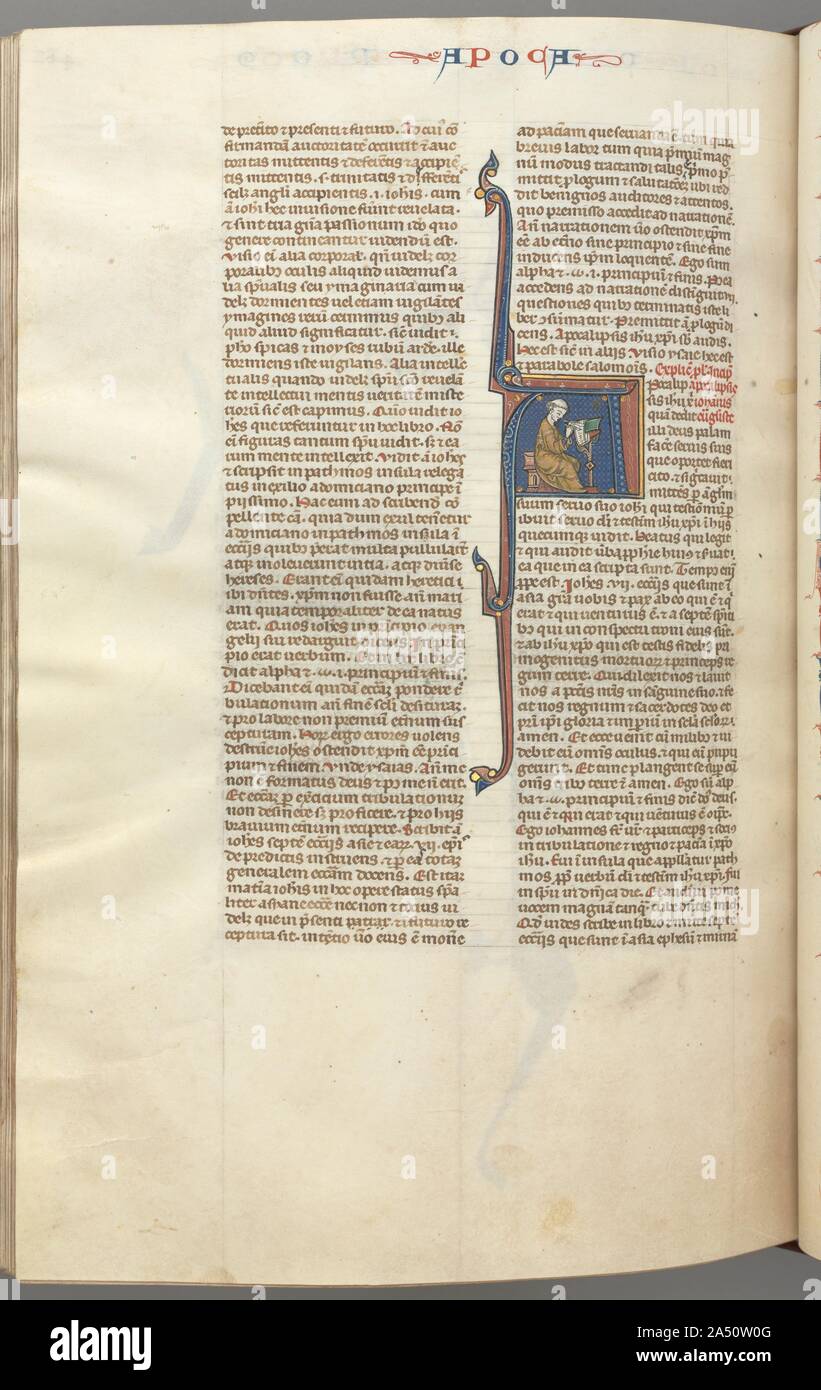 APOCA
de preterito et presenti et futuro. Ad cuius con
firmandam auctoritatem occurrit et auc
toritas mittentis et deferentis et accipien
tis mittentis .s. trinitatis et differenti
scilicet angeli accipientis .i. iohis. cum
iohi hec in visione fuerint revelata.
et sint tria genera passionum ideo quo
genere contineantur videndum est.
Visio enim alia corporalis. quando videlicet cor
poralibus oculis aliquid videmus a
lia spiritualis seu ymaginaria cum vi
delicet dormientes vel etiam vigilantes
ymagines rerum cernimus quibus ali
quid aliud significatur. sicut vidit
pharao spicas et moyses rubum ardere ille
dormiens iste vigilans. Alia intelle
ctualis quando videlicet spiritu sancto revelan
te intellectu mentis veritatem miste
riorum sicut est capimus. Quomodo vidit io
hes que referuntur in hoc libro. Non
enim figuras tantum spiritu vidit. sed et ea
rum mente intellexit. Vidit autem iohes
et scripsit in pathmos insula relega
tus in exilio a domiciano principe in
piissimo. Hac eum ad scribendum com
pellente causa. quia dum exul teneretur
a domiciano in pathmos insula in
ecclesiis quibus preerat multa pullularunt
atque inoleverunt vitia. atque diverse
hereses. Erant enim quidam heretici
ibidem dicentes. xpm non fuisse ante mari
am quia temporaliter de ea natus
erat. Quos iohes in principio evan
gelii sui redarguit dicens. In princi
pio erat verbum. Etiam in hoc libro
dicit alpha et ω. .i. principium et finis.
Dicebant etiam quidam ecclesiam pondere tri
bulationum ante finem seculi desituram.
et pro labore non premium eternum sus
cepturam. Horum ergo errores volens
destruere iohes ostendit xpm esse princi
pium et finem. Unde ysaias. Ante me
non est formatus deus et post me non erit.
Et ecclesiam per exercicium tribulationum
non desinere sed proficere. et pro hiis
bravium eternum recipere. Scribit autem
iohes septem ecclesiis asie et earum .vii. episcopis
de predictis instruens. et per eas totam
generalem ecclesiam docens. Est itaque
materia iohis in hoc opere status spiritua
liter asiane ecclesie nec non et totius vi
delicet que in presenti patitur. et in futuro re
ceptura sit. intentio vero eius est monere
ad patientiam que servanda est. cum quia
brevis labor tum quia premium mag
num modus tractandi talis. primo pre
mittit prologum et salutationem. ubi red
dit benignos auditores et attentos.
quo premisso accedit ad narrationem.
Ante narrationem vero ostendit xpm
esse ab eterno sine principio et sine fine
inducens ipsum loquentem. Ego sum
alpha et .ω. .i. principium et finis. Postea
accedens ad narrationem distinguit in
questiones quibus terminatis iste li
ber consumatur. Premittit autem prologum di
cens. Apocalipsis ihu xpi subaudis.
Hec est sicut in aliis visio ysaie hec est
et parabole salomonis. Explicit
Apocalipsis apocalipsis
sis ihu xpi iohannis
quam dedit evangeliste
illi deus palam
facere servis suis
que oportet fieri
cito. et significavit
mittens per angelum
suum servo suo iohi qui testimonium per
ibuit verbo dei et testimonium ihu xpi in hiis
quecumque vidit. Beatus qui legit
et qui audit verba prophetie huius et servat
ea que in ea scripta sunt. Tempus enim
prope est. Iohes .vii. ecclesiis que sunt in
asia gratia vobis et pax ab eo qui est et qui
erat et qui venturus est. et a septem spiriti
bus qui in conspectu troni eius sunt.
et ab ihu xpo qui est testis fidelis pri
mogenitus mortuorum et princeps re
gum terre. Qui dilexit nos et lavit
nos a peccatis nostris in sanguine suo. et fe
cit nos regnum et sacerdotes deo et
patri ipsi gloria et imperium in secula seculorum.
amen. Et ecce venit cum nubibus et vi
debit eum omnis oculus. et qui eum pupu
gerunt. Et tunc plangent se super eum
omnes tribus terre etiam amen. Ego sum alp
ha et .ω. principium et finis dicit dominus deus.
qui est et qui erat et qui venturus est omnipotens.
Ego iohannes frater vester et particeps et socius
in tribulatione et regno et patientia in xpo
ihu. Fui in insula que appellatur path
mos propter verbum dei et testimonium ihu xpi. fui
in spiritu in dominica die. Et audivi post me
vocem magnam tanquam tube dicentis michi
Quod vides scribe in libro et mitte septem
ecclesiis que sunt in asia ephesum et zmirnam
alamy
alamy
a
alamy
www.alamy.com
Image ID: 2A50W0G